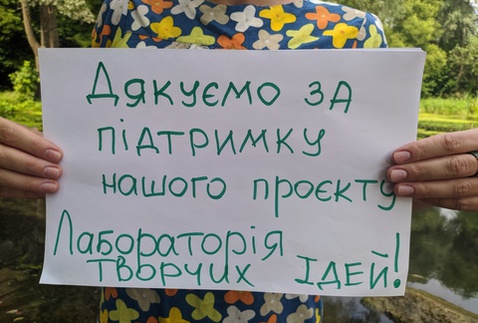 Дякуємо за
підтримку
нашого проєкту
Лабораторія
творчих ідей!